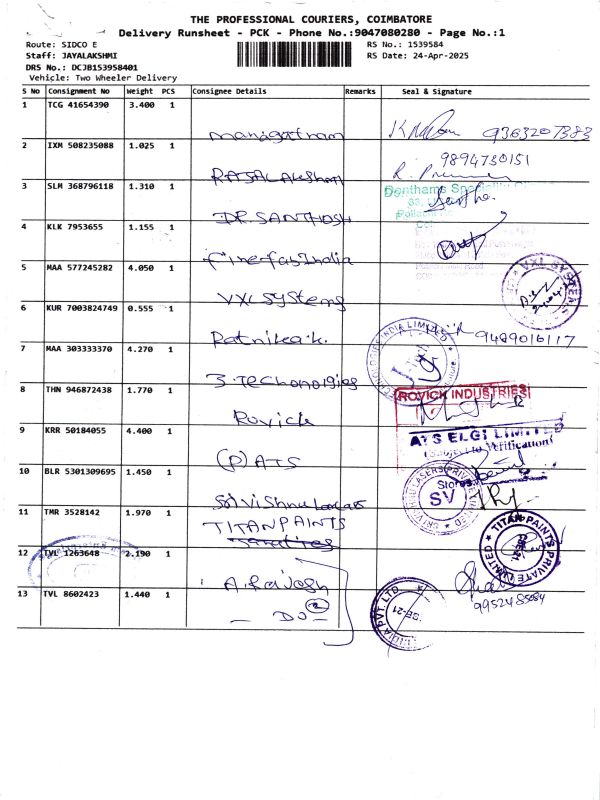 THE PROFESSIONAL COURIERS, COIMBATORE
Delivery Runsheet - PCK - Phone No.:9047080280 - Page No.:1
Route: SIDCO E
RS No.: 1539584
Staff: JAYALAKSHMI
RS Date: 24-Apr-2025
DRS No.: DCJB153958401
Vehicle: Two Wheeler Delivery
S No Consignment No Weight PCS Consignee Details Remarks Seal & Signature
1 TCG 41654390 3.400 1
9363207383
2 IXM 508235088 1.025 1
9894730151
3 SLM 368796118 1.310 1
DR. SANTHOSH
4 KLK 7953655 1.155 1
finerfasIndia
5 MAA 577245282 4.050 1
VXL SYSTEMS
VXL SYSTEMS
6 KUR 7003824749 0.555 1
Ratnika.k. 9489016117
7 MAA 303333370 4.270 1
8 THN 946872438 1.770 1
Rovick
ROVICK INDUSTRIES
9 KRR 50184055 4.400 1
(P) ATS
ATS ELGI LIMITED
(Subject to Verification)
Stores
10 BLR 5301309695 1.450 1
SV
11 TMR 3528142 1.970 1
TITAN PAINTS
TITAN PAINTS PRIVATE LIMITED
CBE-21
12 TVL 1263648 2.190 1
9952485084
13 TVL 8602423 1.440 1
- DO - 2